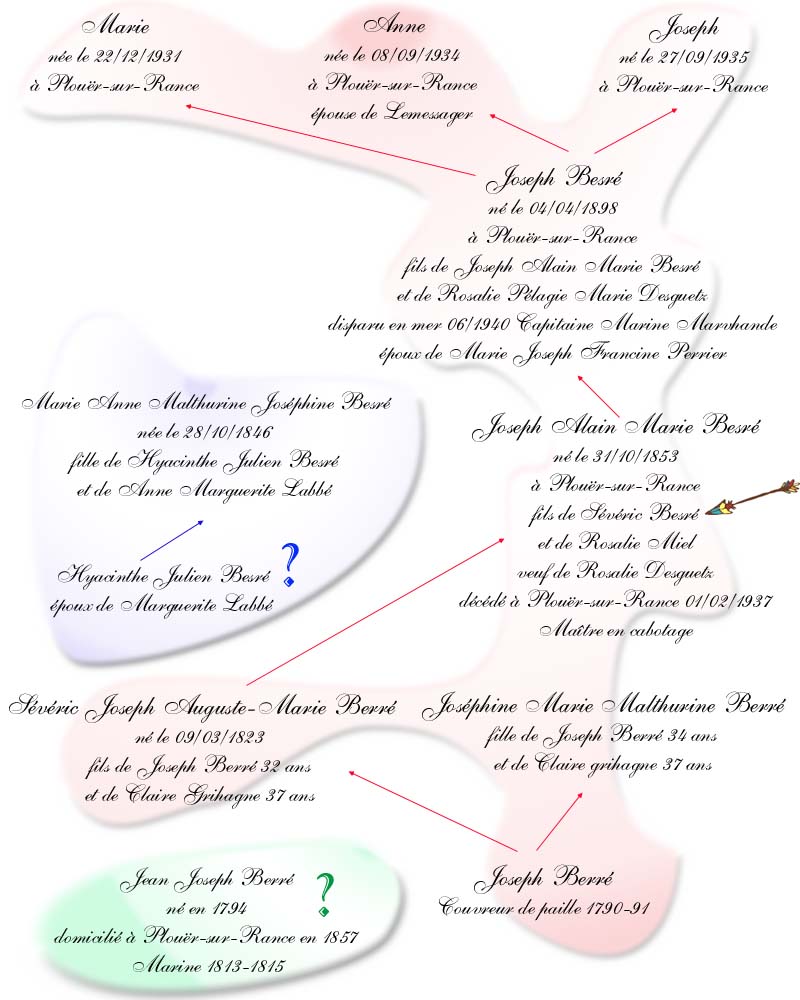 Marie
née le 22/12/1931
à Plouër-sur-Rance
Anne
née le 08/09/1934
à Plouër-sur-Rance
épouse de Lemessager
Joseph
né le 27/09/1935
à Plouër-sur-Rance
Joseph Besré
né le 04/04/1898
à Plouër-sur-Rance
fils de Joseph Alain Marie Besré
et de Rosalie Pélagie Marie Desguetz
disparu en mer 06/1940 Capitaine Marine Marchande
époux de Marie Joseph Francine Perrier
Marie Anne Malthurine Joséphine Besré
née le 28/10/1846
fille de Hyacinthe Julien Besré
et de Anne Marguerite Labbé
Hyacinthe Julien Besré ?
époux de Marguerite Labbé
Joseph Alain Marie Besré
né le 31/10/1853
à Plouër-sur-Rance
fils de Sévéric Besré
et de Rosalie Miel
veuf de Rosalie Desguetz
décédé à Plouër-sur-Rance 01/02/1937
Maître en cabotage
Sévéric Joseph Auguste-Marie Berré
né le 09/03/1823
fils de Joseph Berré 32 ans
et de Claire Grihagne 37 ans
Joséphine Marie Malthurine Berré
fille de Joseph Berré 34 ans
et de Claire grihagne 37 ans
Jean Joseph Berré ?
né en 1794
domicilié à Plouër-sur-Rance en 1857
Marine 1813-1815
Joseph Berré
Couvreur de paille 1790-91